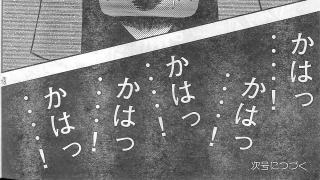 かはっ
……！
かはっ
……！
かはっ
……！
かはっ
……！
かはっ
……！
次号につづく